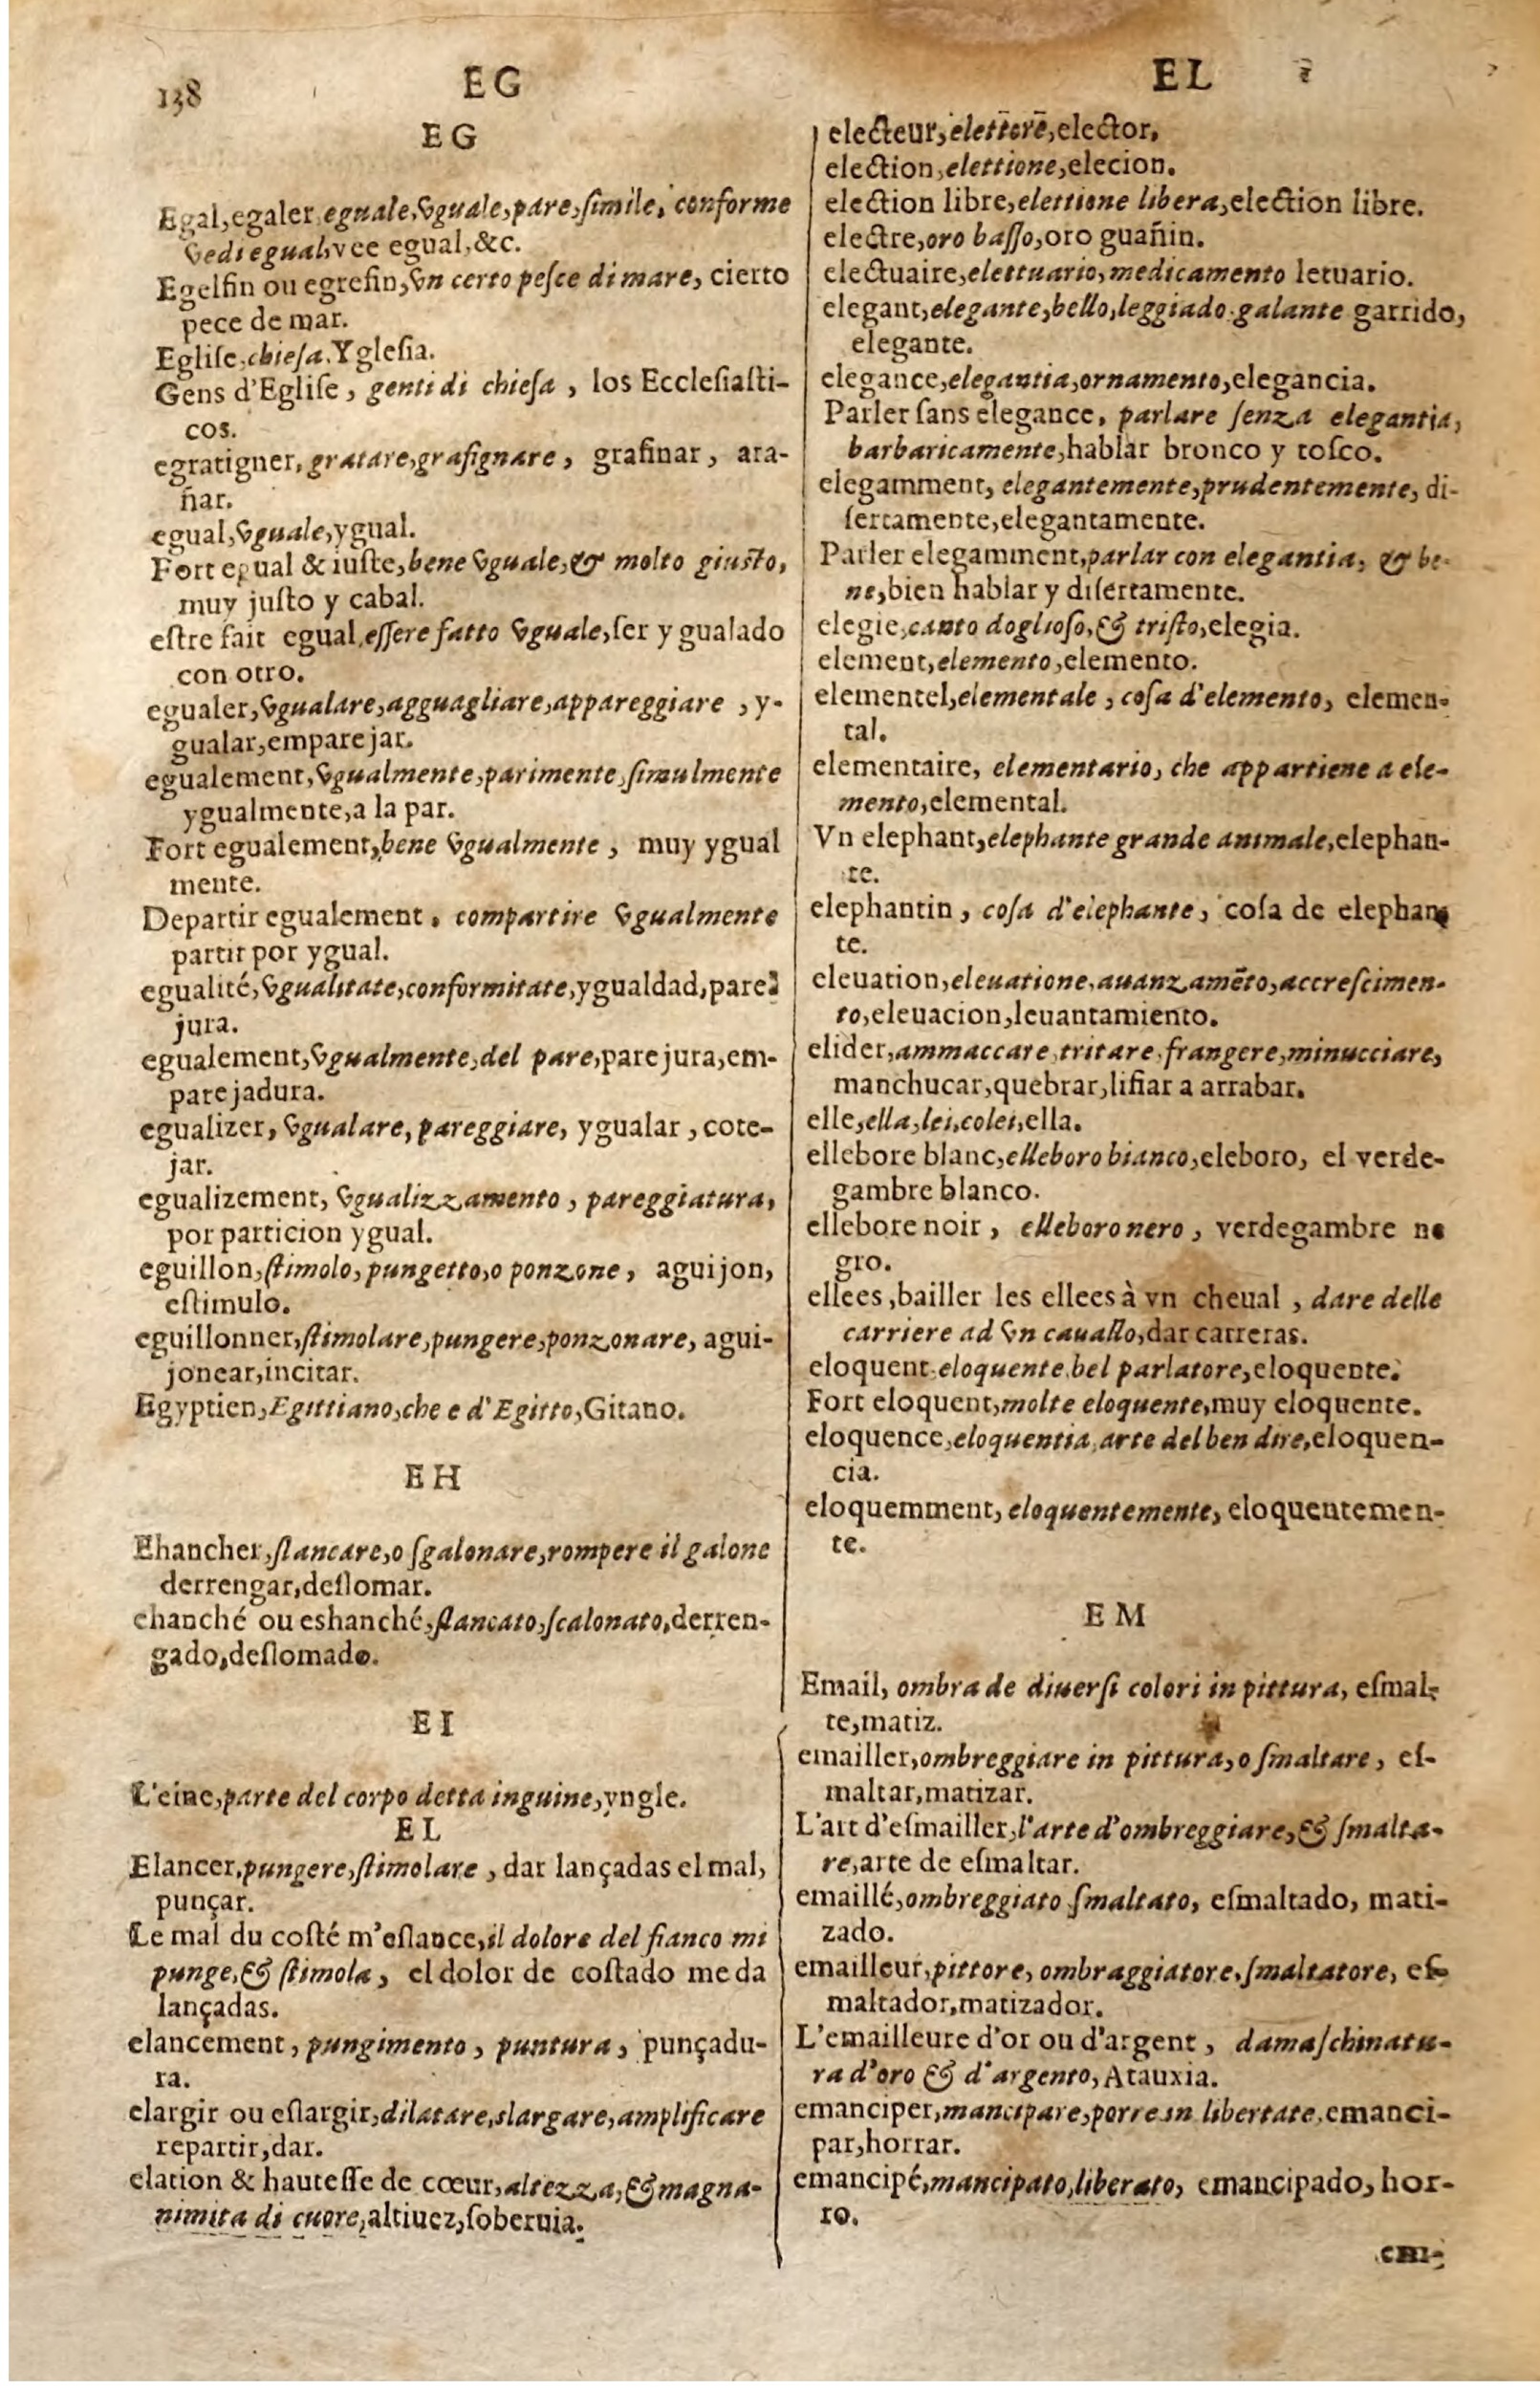 138
EG
EL
EG
Egal,egaler eguale,vguale,pare,ſimile, conforme
vedi egual,vee egual,&c.
Egelfin ou egrefin,vn certo peſce di mare, cierto
pece de mar.
Egliſe,chieſa,Ygleſia.
Gens d'Egliſe, genti di chieſa, los Eccleſiaſti-
cos.
egratigner, gratare,grafignare, grafinar, ara-
ñar.
egual,vguale,ygual.
Fort egual & iuſte,bene vguale,& molto giuſto,
muy juſto y cabal.
eſtre fait egual,eſſere fatto vguale,ſer y gualado
con otro.
egualer,vgualare,agguagliare,appareggiare, y-
gualar,emparejar.
egualement,vgualmente,parimente,ſimulmente
ygualmente,a la par.
Fort egualement,bene vgualmente, muy ygual
mente.
Departir egualement, compartire vgualmente
partir por ygual.
egualité,vgualitate,conformitate,ygualdad,pare-
jura.
egualement,vgualmente,del pare,parejura,em-
parejadura.
egualizer, vgualare, pareggiare, ygualar, cote-
jar.
egualizement, vgualizzamento, pareggiatura,
por particion ygual.
eguillon,ſtimolo,pungetto,o ponzone, aguijon,
eſtimulo.
eguillonner,ſtimolare,pungere,ponzonare, agui-
jonear,incitar.
Egyptien,Egittiano,che e d'Egitto,Gitano.
EH
Ehancher,ſlancare,o ſgalonare,rompere il galone
derrengar,deſlomar.
ehanché ou eshanché,ſlancato,ſcalonato,derren-
gado,deſlomado.
EI
L'eine,parte del corpo detta inguine,yngle.
EL
Elancer,pungere,ſtimolare, dar lançadas el mal,
punçar.
Le mal du coſté m'eſlance,il dolore del fianco mi
punge,& ſtimola, el dolor de coſtado me da
lançadas.
elancement, pungimento, puntura, punçadu-
ra.
elargir ou eſlargir,dilatare,slargare,amplificare
repartir,dar.
elation & hauteſſe de cœur,altezza,& magna-
nimita di cuore,altiuez,ſoberuia.
electeur,elettōrē,elector.
election,elettione,elecion.
election libre,elettione libera,election libre.
electre,oro baſſo,oro guañin.
electuaire,elettuario,medicamento letuario.
elegant,elegante,bello,leggiado galante garrido,
elegante.
elegance,elegantia,ornamento,elegancia.
Parler ſans elegance, parlare ſenza elegantia,
barbaricamente,hablar bronco y toſco.
elegamment, elegantemente,prudentemente, di-
ſertamente,elegantamente.
Parler elegamment,parlar con elegantia, & be-
ne,bien hablar y diſertamente.
elegie,canto doglioſo,& triſto,elegia.
element,elemento,elemento.
elementel,elementale, coſa d'elemento, elemen-
tal.
elementaire, elementario, che appartiene a ele-
mento,elemental.
Vn elephant,elephante grande animale,elephan-
te.
elephantin, coſa d'elephante, coſa de elephan-
te.
eleuation,eleuatione,auanzamēto,accreſcimen-
to,eleuacion,leuantamiento.
elider,ammaccare,tritare,frangere,minucciare,
manchucar,quebrar,liſiar a arrabar.
elle,ella,lei,colei,ella.
ellebore blanc,elleboro bianco,eleboro, el verde-
gambre blanco.
ellebore noir, elleboro nero, verdegambre ne
gro.
ellees,bailler les ellees à vn cheual, dare delle
carriere ad vn cauallo,dar carreras.
eloquent,eloquente,bel parlatore,eloquente.
Fort eloquent,molte eloquente,muy eloquente.
eloquence,eloquentia,arte del ben dire,eloquen-
cia.
eloquemment, eloquentemente, eloquentemen-
te.
EM
Email, ombra de diuerſi colori in pittura, eſmal-
te,matiz.
emailler,ombreggiare in pittura,o ſmaltare, eſ-
maltar,matizar.
L'art d'eſmailler,l'arte d'ombreggiare,& ſmalta-
re,arte de eſmaltar.
emaillé,ombreggiato ſmaltato, eſmaltado, mati-
zado.
emailleur,pittore, ombraggiatore,ſmaltatore, eſ-
maltador,matizador.
L'emailleure d'or ou d'argent, damaſchinatu-
ra d'oro & d'argento, Atauxia.
emanciper,mancipare,porre in libertate,emanci-
par,horrar.
emancipé,mancipato,liberato, emancipado, hor-
ro.